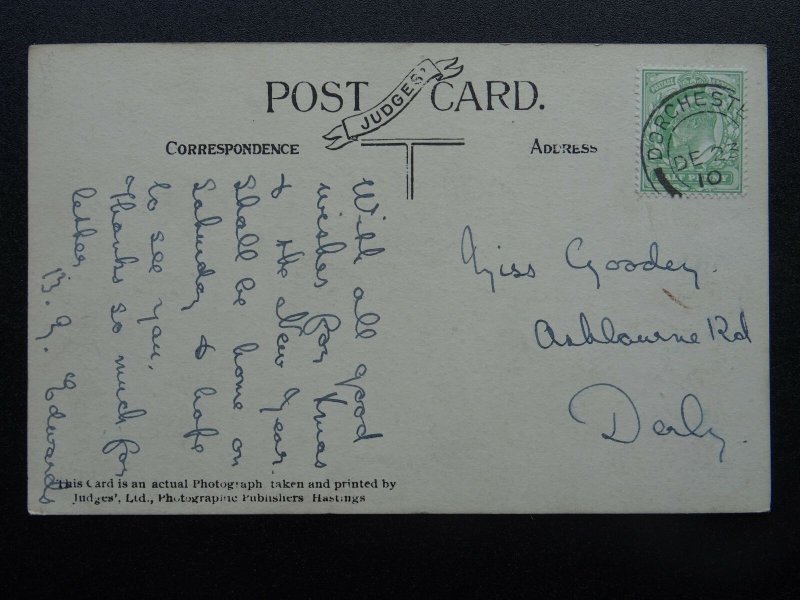 POST CARD.
JUDGES'
CORRESPONDENCE
ADDRESS
DORCHESTE
DE 23
10
With all good
wishes for Xmas
& the New Year.
Shall be home on
Saturday & hope
to see you,
Thanks so much for
letter
Edwards
Miss Goodey.
Ashbourne Rd
Derby.
This Card is an actual Photograph taken and printed by
Judges', Ltd., Photographic Publishers Hastings